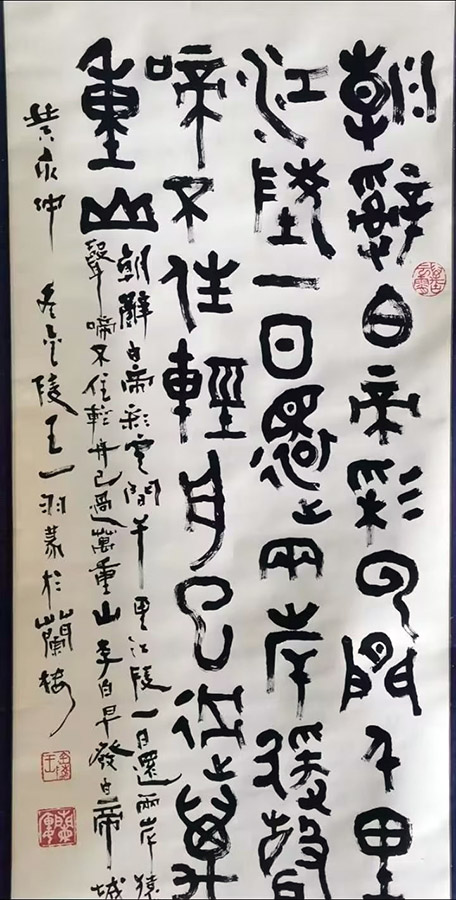 朝辭白帝彩云間千里
江陵一日還兩岸猿聲
啼不住輕舟已過萬
重山
朝辭白帝彩雲間千里江陵一日還兩岸猿
聲啼不住輕舟已過萬重山李白早發白帝城
仲冬金陵王一羽篆於蘭樓